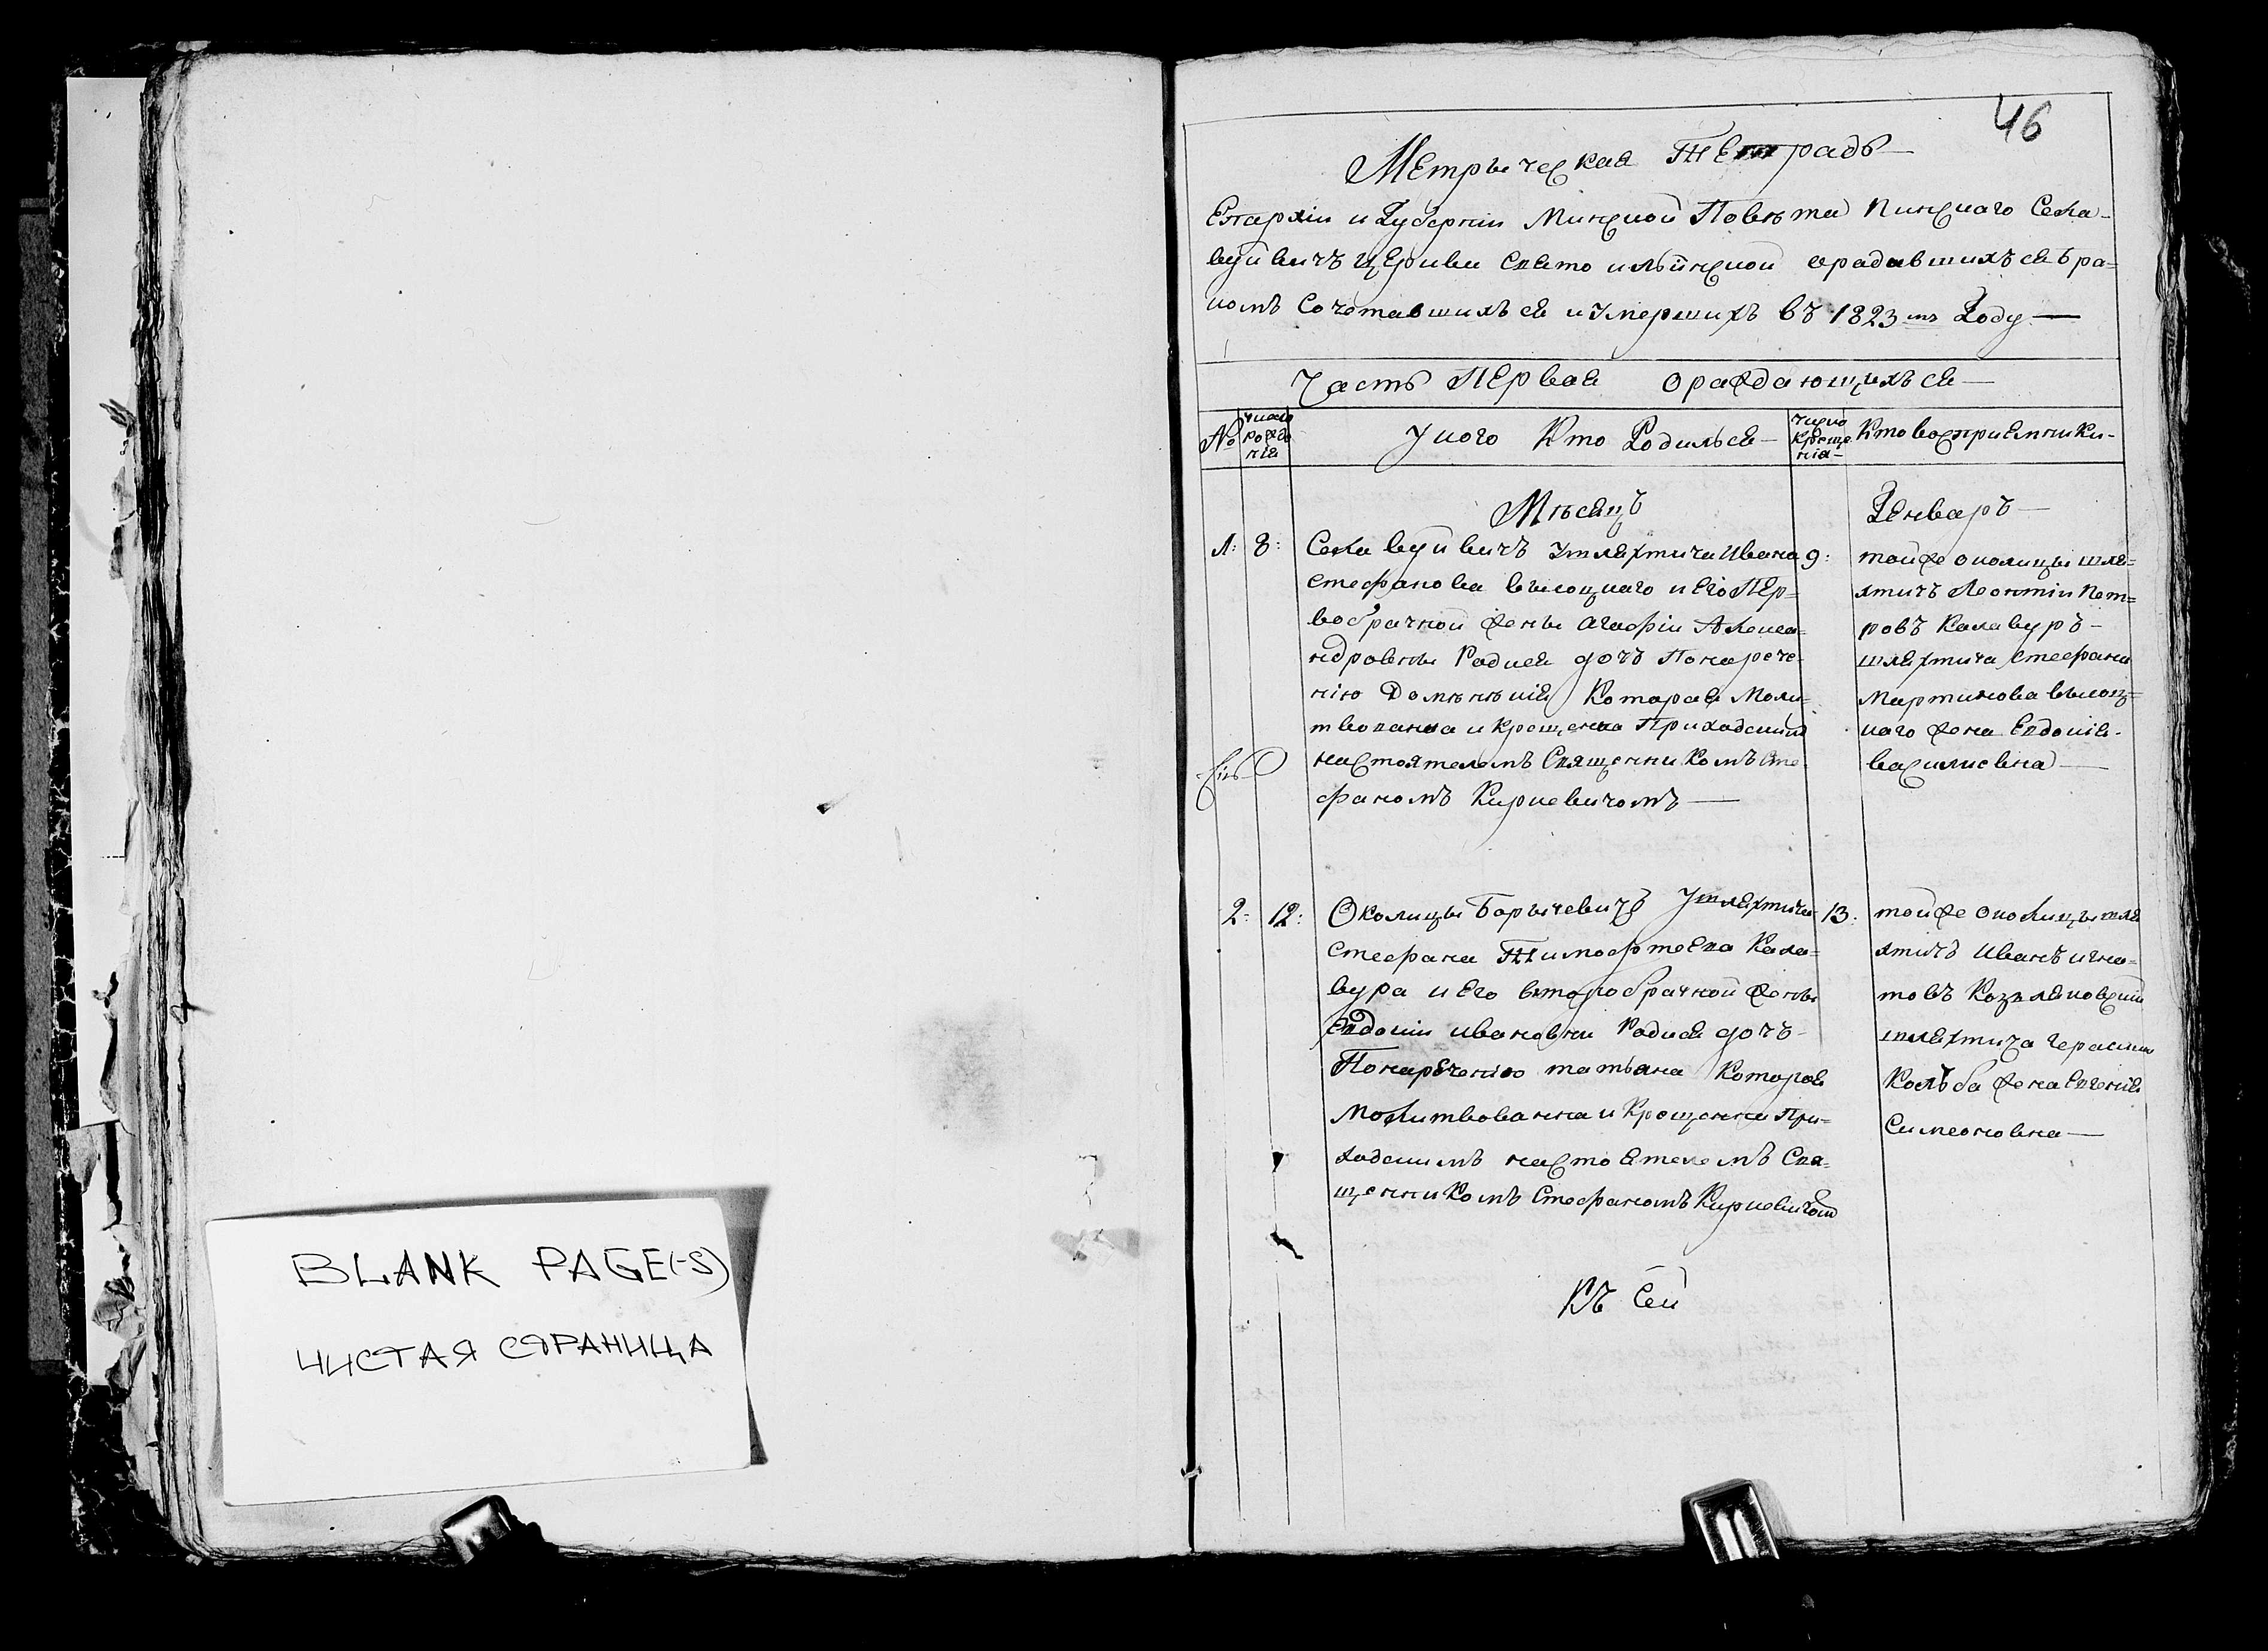 BLANK PAGE(-S)
ЧИСТАЯ СТРАНИЦА
46
Метрыческая Тетрадь
Епархіи и Губерніи Минской Повѣта Пинскаго Села
вуйвичъ Церкви Свято ильинской орадавшихъся бра=
комъ Сочетавшихъся и Умершихъ въ 1823 мъ Году
Часть Первая ораждающихъся
№
число рожде нія
У кого Кто Родилься
число креще нія
Кто воспріемники
Мѣсяцъ Генваръ
1: 8:
Села вуйвичъ Ушляхтича Ивана
Стефанова высоцкаго и Его Пер=
вобрачной жены Агафіи Алекса=
ндровны Радися дочъ Понарече=
нію Которая Моли=
твованна и крещенна Приходским
настоятелемъ Священникомъ Сте=
фаномъ Киркевичомъ
9:
тойже околицы шля=
хтичъ Леонтіи Пет=
ровъ Калавуръ
шляхтича Стефана
Мартинова высоц=
каго жена Евдокія
василиевна
2: 12:
Околицы Барычевичъ Ушляхтича
Стефана Тимофтеева Кала=
вура и Его второбрачной жены
Евдокіи ивановни Радися дочъ
Понареченію татьяна Которая
Молитвованна и Крещенна При=
ходскимъ настоятелемъ Свя=
щенникомъ Стефаномъ Киркевичом
13:
тойже околицы шля
хтичъ Иванъ игна=
товъ Козляковскій
шляхтича Герасима
Колъба жена Евгенія
Симеоновна
Къ Сей